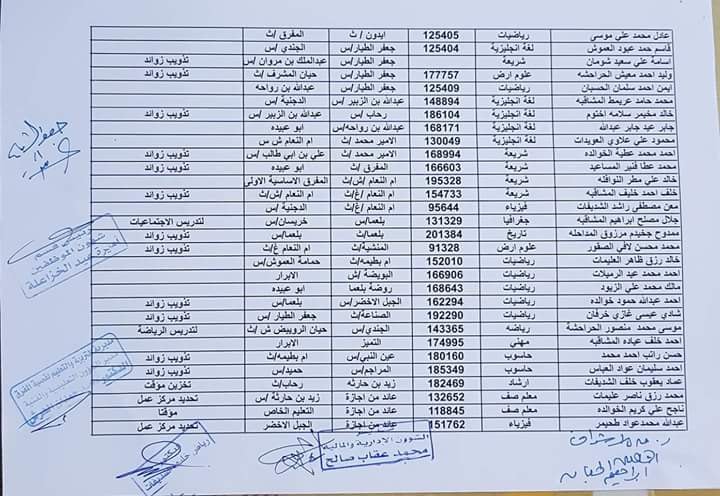 عادل محمد علي موسى رياضيات 125405 ايدون / ث المفرق /ث
قاسم حمد عبود العموش لغة انجليزية 125404 جعفر الطيار/س الجندي /س
اسامة علي سعيد شومان شريعة جعفر الطيار/س عبدالملك بن مروان /س تذويب زوائد
وليد احمد معيش الحراحشه علوم ارض 177757 جعفر الطيار/س حيان المشرف /ث تذويب زوائد
ايمن احمد سلمان الحسبان رياضيات 125409 جعفر الطيار/س عبدالله بن رواحه
محمد حامد عريمط المشاقبه لغة انجليزية 148894 عبدالله بن الزبير /س الدجنية /س
خالد مخيمر سلامه اختوم لغة انجليزية 186104 رحاب /س عبدالله بن الزبير /س تذويب زوائد
جابر عيد جابر عبدالله لغة انجليزية 168171 عبدالله بن رواحه/س ابو عبيده
محمود علي علاوي العويدات لغة انجليزية 130049 الامير محمد /ث ام النعام ش س
احمد محمد عطية الخوالده شريعة 168994 الامير محمد /ث علي بن ابي طالب /س تذويب زوائد
محمد عطا فنير المساعيد شريعة 166603 المفرق /ث ابو عبيده تذويب زوائد
خالد علي مطر النوافله شريعة 195328 ام النعام ش/ث المفرق الاساسية الاولى
خلف احمد خليف المشاقبه شريعة 154733 ام النعام /غ/ث ام النعام /ش/ث تذويب زوائد
معن مصطفى راشد الشديفات فيزياء 95644 ام النعام /غ/ث الدجنية /س
جلال مصلح ابراهيم المشاقبه جغرافيا 131329 بلعما/س خريسان/س لتدريس الاجتماعيات
ممدوح جخيدم مرزوق المداحله تاريخ 201384 بلعما/ث بلعما/س تذويب زوائد
محمد محسن لافي الصقور علوم ارض 91328 المنشية/ث ام النعام غ/ث تذويب زوائد
خالد رزق ظاهر العليمات رياضيات 152010 ام بطيمه/ث حمامة العموش/س
احمد محمد عيد الرميلات رياضيات 166906 البويضة /ش الابرار
مالك محمد علي الزيود رياضيات 168643 روضة بلعما ابو عبيده
احمد عبدالله حمود خوالده رياضيات 162294 الجبل الاخضر/س بلعما/س تذويب زوائد
شادي عيسى غازي خرفان رياضيات 192290 الصناعة/ث جعفر الطيار /س تذويب زوائد
موسى محمد منصور الحراحشة رياضه 143365 الجندي/س حيان الرويبض ش /ث لتدريس الرياضة
احمد خلف عياده المشاقبه مهني 174995 التميز الابرار
حسن راتب احمد محمد حاسوب 180160 عين النبي/س ام بطيمه/ث تذويب زوائد
احمد سليمان عواد العباس حاسوب 185349 المراجم/س حميد/س تذويب زوائد
عماد يعقوب خلف الشديفات ارشاد 182469 زيد بن حارثه رحاب/ث تخزين موقت
محمد رزق ناصر عليمات معلم صف 132652 عائد من اجازة زيد بن حارثة /س تحديد مركز عمل
ناجح علي كريم الخوالده معلم صف 118845 عائد من اجازة التعليم الخاص موقتا
عبدالله محمدعواد طحيمر فيزياء 151762 عائد من اجازة الجبل الاخضر تحديد مركز عمل
رئيس قسم
شؤون الموظفين
اميرة عيد الخزاعلة
مديرية التربية والتعليم لقصبة المفرق
الدكتور
الشؤون الادارية والمالية
محمد عقاب صالح